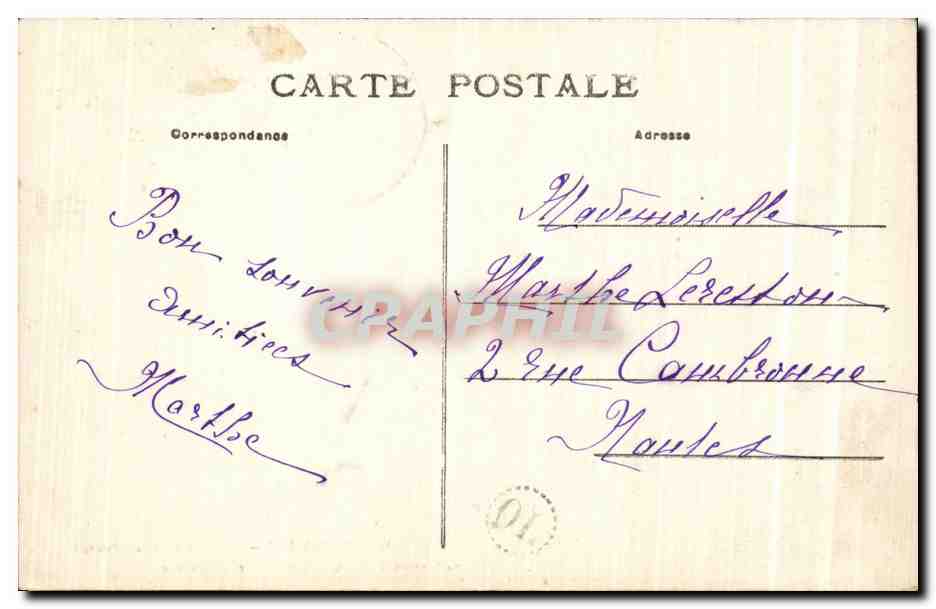 CARTE POSTALE
Correspondance
Adresse
Bon souvenir
Amitiées
Marthe
Mademoiselle
Marthe Lereston
2 rue Cambronne
Nantes
CPAPHIL